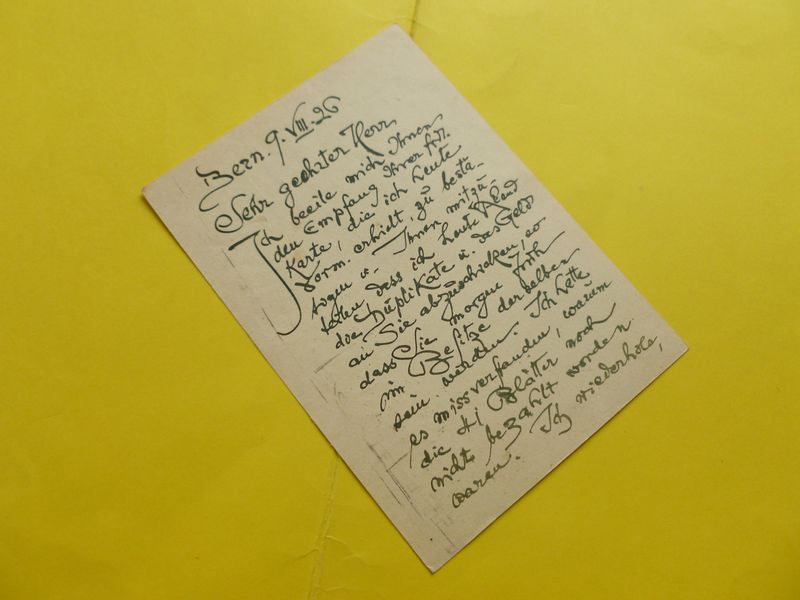 Bern. 9. VIII. 26
Sehr geehrter Herr
Ich beeile mich Ihnen
den Empfang Ihrer frl.
Karte, die ich heute
Vorm. erhielt, zu bestä-
tigen u. Ihnen mitzu-
teilen dass ich heute Abend
die Duplikate u. das Geld
an Sie abzuschicken, so
dass Sie morgen früh
im Besitze derselben
sein werden. Ich hatte
es missverstanden, warum
die Blätter noch
nicht bezahlt worden
waren. Ich wiederhole,